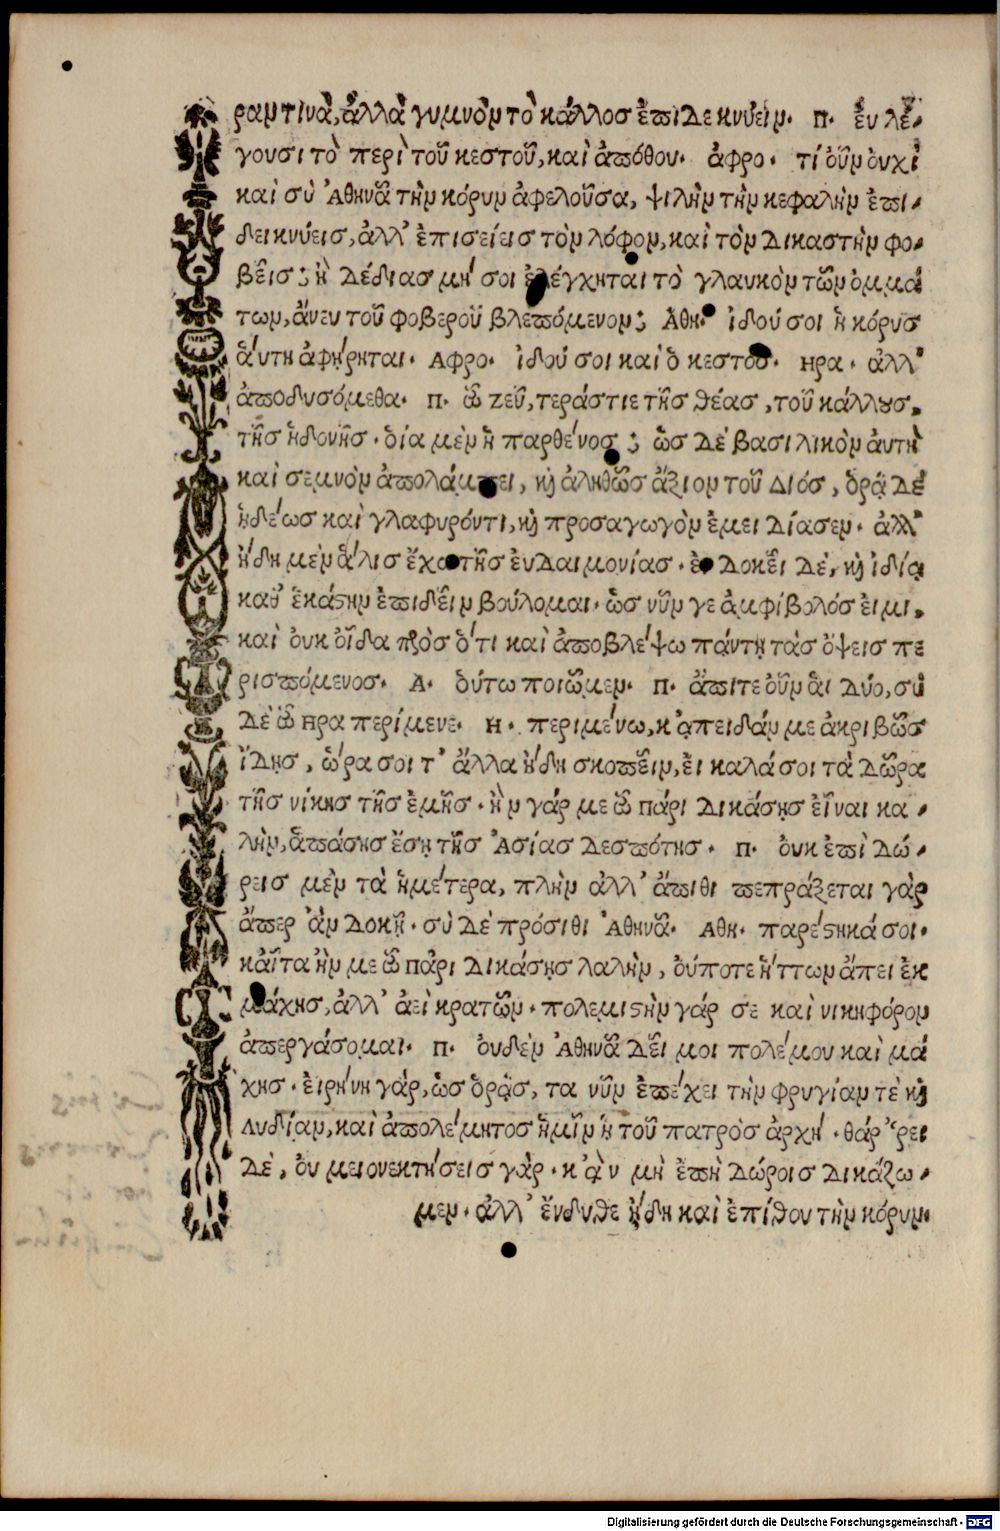 ραν τινὰ, ἀλλὰ γυμνὸν τὸ κάλλος ἐπιδεικνύειν. Π. ἐυ λέ-
γουσι τὸ περὶ τοῦ κεστοῦ, καὶ ἀπόθου. ἀφρο. τί οὖν ὀυχὶ
καὶ σὺ Ἀθηνᾶ τὴν κόρυν ἀφελοῦσα, ψιλὴν τὴν κεφαλὴν ἐπι-
δεικνύεις, ἀλλ' ἐπισείεις τὸν λόφον, καὶ τὸν δικαστὴν φο-
βεῖς; ἢ δέδιας μή σοι ἐλέγχηται τὸ γλαυκὸν τῶν ὀμμά
των, ἄνευ τοῦ φοβεροῦ βλεπόμενον; Ἀθη. ἰδού σοι ἡ κόρυς
ἁύτη ἀφῄρηται. Αφρο. ἰδού σοι καὶ ὁ κεστὸς. Ηρα. ἀλλ'
ἀποδυσόμεθα. Π. ὦ ζεῦ, τεράστιε τῆς θέας, τοῦ κάλλους,
τῆς ἡδονῆς. ὁία μὲν ἡ παρθένος; ὡς δὲ βασιλικὸν ἁυτὴ
καὶ σεμνὸν ἀπολάμπει, καὶ ἀληθῶς ἄξιον τοῦ Διός, ὁρᾷ δὲ
ἡδέως καὶ γλαφυρόντι, καὶ προσαγωγὸν ἐμειδίασεν. ἀλλ'
ἤδη μὲν ἅλις ἔχω τῆς ἐυδαιμονίας. ἐι δοκεῖ δὲ, καὶ ἰδίᾳ
καθ' ἑκάστην ἐπιδεῖν βούλομαι. ὡς νῦν γε ἀμφίβολός ἐιμι,
καὶ ὀυκ οἶδα πρὸς ὅ τι καὶ ἀποβλέψω πάντῃ τὰς ὄψεις πε
ρισπόμενος. Α. ὁύτω ποιῶμεν. Π. ἄπιτε οὖν ἁι δύο, σὺ
δὲ ὦ Ηρα περίμενε. Η. περιμένω, κἀπειδάν με ἀκριβῶς
ἴδῃς, ὥρα σοι τ' ἄλλα ἤδη σκοπεῖν, ἐι καλά σοι τὰ δῶρα
τῆς νίκης τῆς ἐμῆς. ἢν γάρ με ὦ πάρι δικάσῃς εἶναι κα-
λὴν, ἁπάσης ἔσῃ τῆς Ἀσίας δεσπότης. Π. ὀυκ ἐπὶ δώ-
ρεις μὲν τὰ ἡμέτερα, πλὴν ἀλλ' ἄπιθι πεπράξεται γὰρ
ἅπερ ἂν δοκῇ. σὺ δὲ πρόσιθι Ἀθηνᾶ. Αθη. παρέστηκά σοι.
κᾆτα ἤν με ὦ πάρι δικάσῃς λαλὴν, ὀύποτε ἥττων ἄπει ἐκ
μάχης, ἀλλ' ἀεὶ κρατῶν. πολεμιστὴν γάρ σε καὶ νικηφόρον
ἀπεργάσομαι. Π. ὀυδὲν Ἀθηνᾶ δεῖ μοι πολέμου καὶ μά
χης. ἐιρήνη γὰρ, ὡς ὁρᾷς, τα νῦν ἐπέχει τὴν φρυγίαν τὲ καὶ
λυδίαν, καὶ ἀπολέμητος ἡμῖν ἡ τοῦ πατρὸς ἀρχή. θάρ'ῥει
δὲ, ὀυ μειονεκτήσεις γὰρ. κἂν μὴ ἔπὴ δώροις δικάζω-
μεν. ἀλλ' ἔνδυθε ἤδη καὶ ἐπίθου τὴν κόρυν.
Digitalisierung gefördert durch die Deutsche Forschungsgemeinschaft - DFG